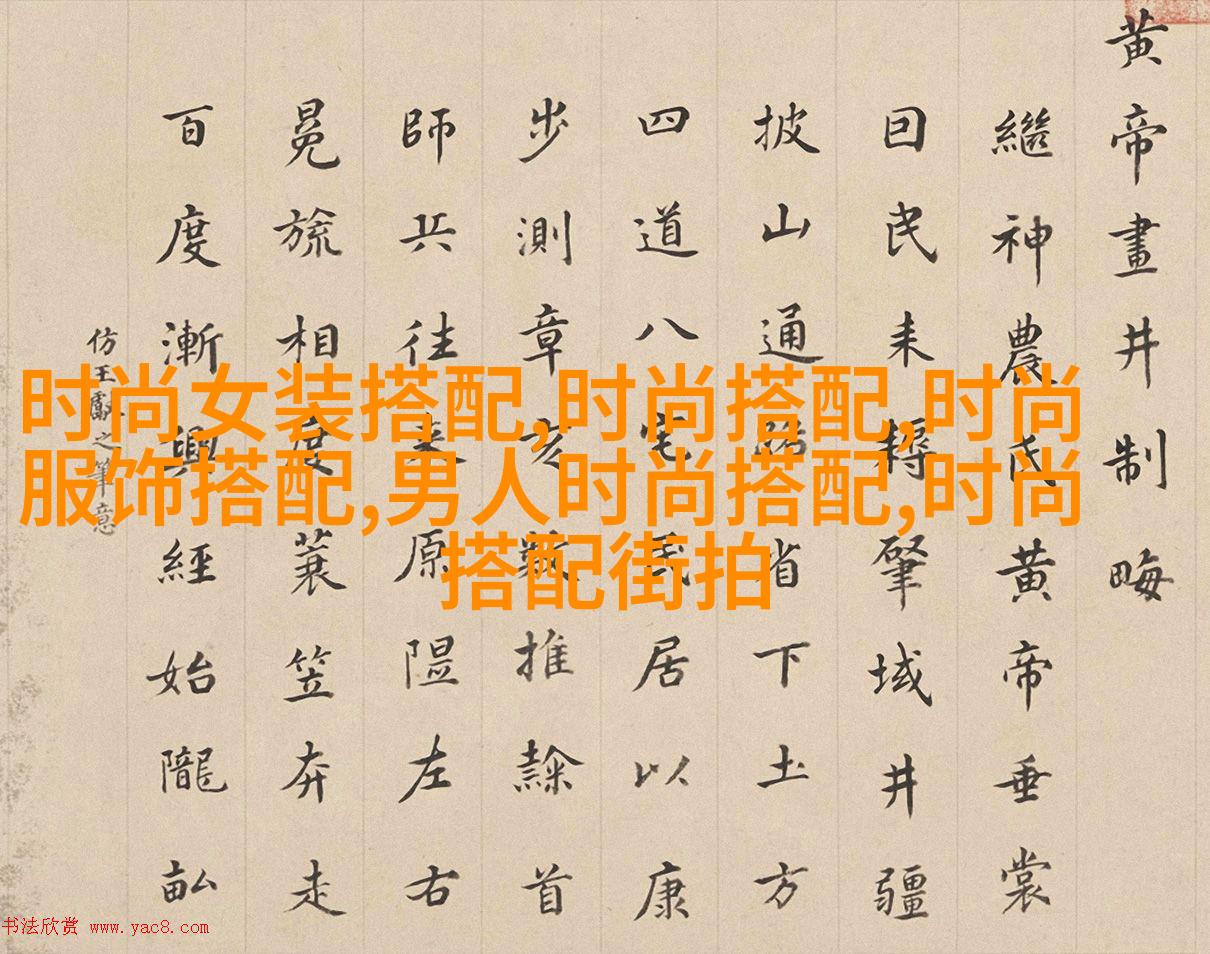 黄帝畫井制畮
繼神農氏黄帝垂裳
囙民耒耨肇域井疆
披山通路省下土方
四道八宅民居以康
步測章亥數推隸首
師兵往来原隰左右
冕旒相度蓑笠奔走
百度漸興經始隴畝
仿王獻之筆意
时尚女装搭配,时尚搭配,时尚
服饰搭配,男人时尚搭配,时尚
搭配街拍
书法欣赏 www.yac8.com